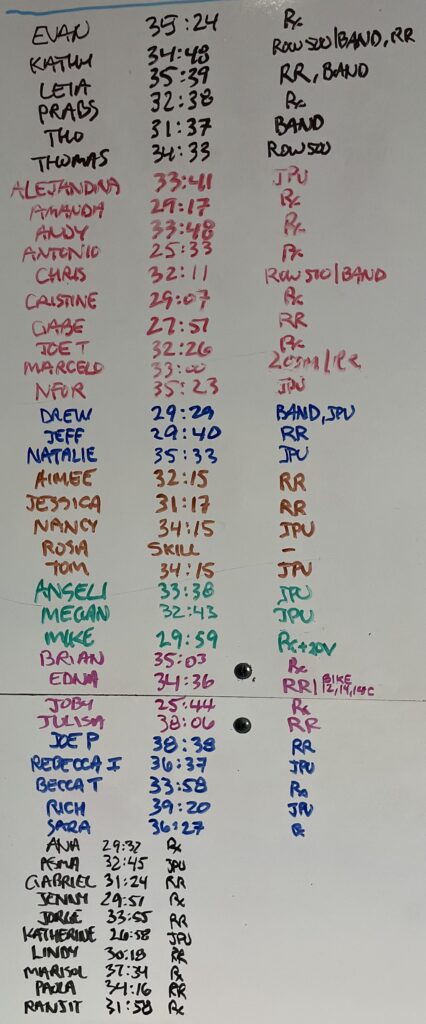 EVAN 39:24 Rx
KATHY 34:48 ROW 500/BAND, RR
LETA 35:39 RR, BAND
PRABS 32:38 Rx
THO 31:37 BAND
THOMAS 34:33 ROW 500
ALEJANDRA 33:41 JPU
AMANDA 29:17 Rx
ANDY 33:48 Rx
ANTONIO 25:33 Rx
CHRIS 32:11 ROW 500/BAND
CRISTINE 29:07 Rx
GABE 27:57 RR
JOE T 32:26 Rx
MARCELO 33:00 /RR
35:23 JPU
DREW 29:29 BAND, JPU
JEFF 29:40 RR
NATALIE 35:33 JPU
AIMEE 32:15 RR
JESSICA 31:17 RR
NANCY 34:15 JPU
ROSIA SKILL -
TOM 34:15 JPU
ANGELI 33:38 JPU
MEGAN 32:43 JPU
MIKE 29:59 Rx+20V
BRIAN 35:03 Rx
EDNA 34:36 RR/ BIKE
JOBY 25:44 Rx
JULISA 38:06 RR
JOE P 38:38 RR
REBECCA I 36:37 JPU
BECCA T 33:58 Rx
RICH 39:20 JPU
SARA 36:27 Rx
ANA 29:32 Rx
ASMA 32:45 JPU
GABRIEL 31:24 RR
JENNY 29:51 Rx
JORGE 33:55 RR
KATHERINE 26:58 JPU
LINDY 30:18 RR
MARISOL 37:34 Rx
PAOLA 34:16 RR
RANJIT 31:58 Rx